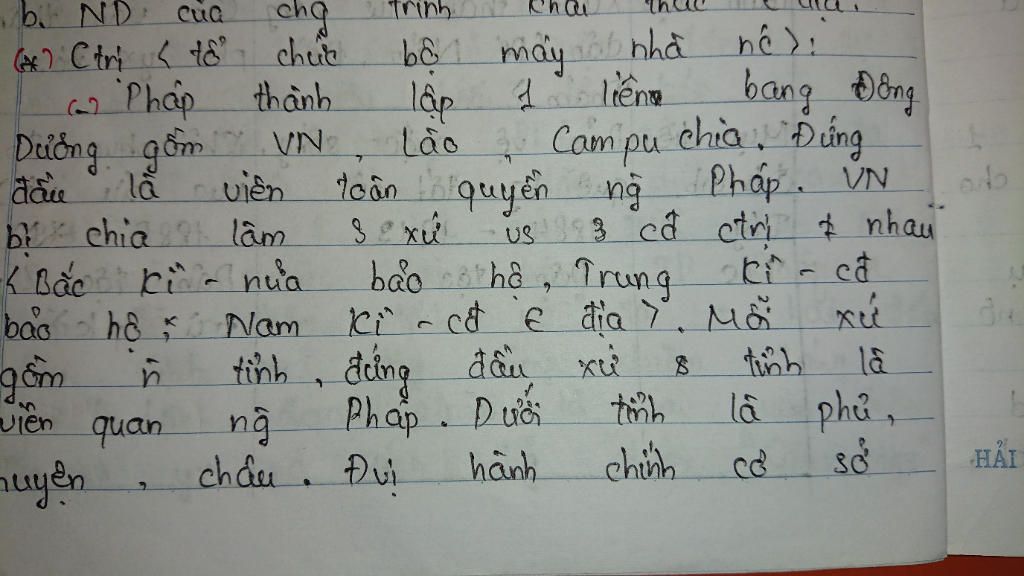 b. ND của chg trình khai thác t địa.
(*) Ctrị < tổ chức bộ máy nhà nc >:
(-) Pháp thành lập 1 liên bang Đông
Dương gồm VN, Lào, Campuchia. Đứng
đầu là viên toàn quyền ng Pháp. VN
bị chia làm 3 xứ vs 3 cđ ctrị ≠ nhau
< Bắc Kì - nửa bảo hộ, Trung Kì - cđ
bảo hộ; Nam Kì - cđ € địa >. Mỗi xứ
gồm n tỉnh, đứng đầu xứ & tỉnh là
viên quan ng Pháp. Dưới tỉnh là phủ,
huyện, châu. Đvị hành chính cơ sở
HẢI